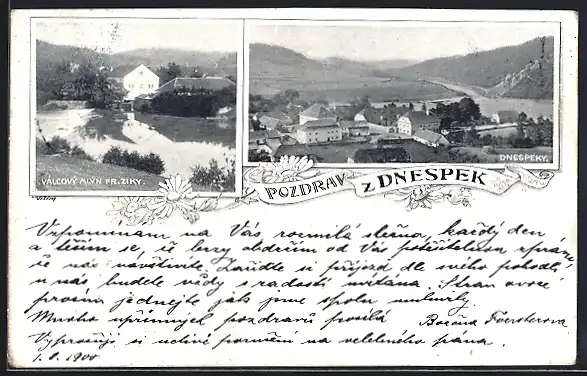 VÁLCOVÝ MLÝN FR. ZIKY.
DNESPEKY.
POZDRAV z DNESPEK
Vzpomínám na Vás rozmilá slečno, každý den
a těším se, iž brzy obdržím od Vás potěšitelnou zprávu
že nás navštívíte. Zařiďte si příjezd dle svého pohodlí,
u nás budete vždy s radostí uvítána. Stran ovoce
prosím jednejte jak jsme spolu mluvily.
Mnoho upřímných pozdravů posílá Božena Foersterova
Vyprošuji si uctivé poručení na velctěného pána.
1.8.1900